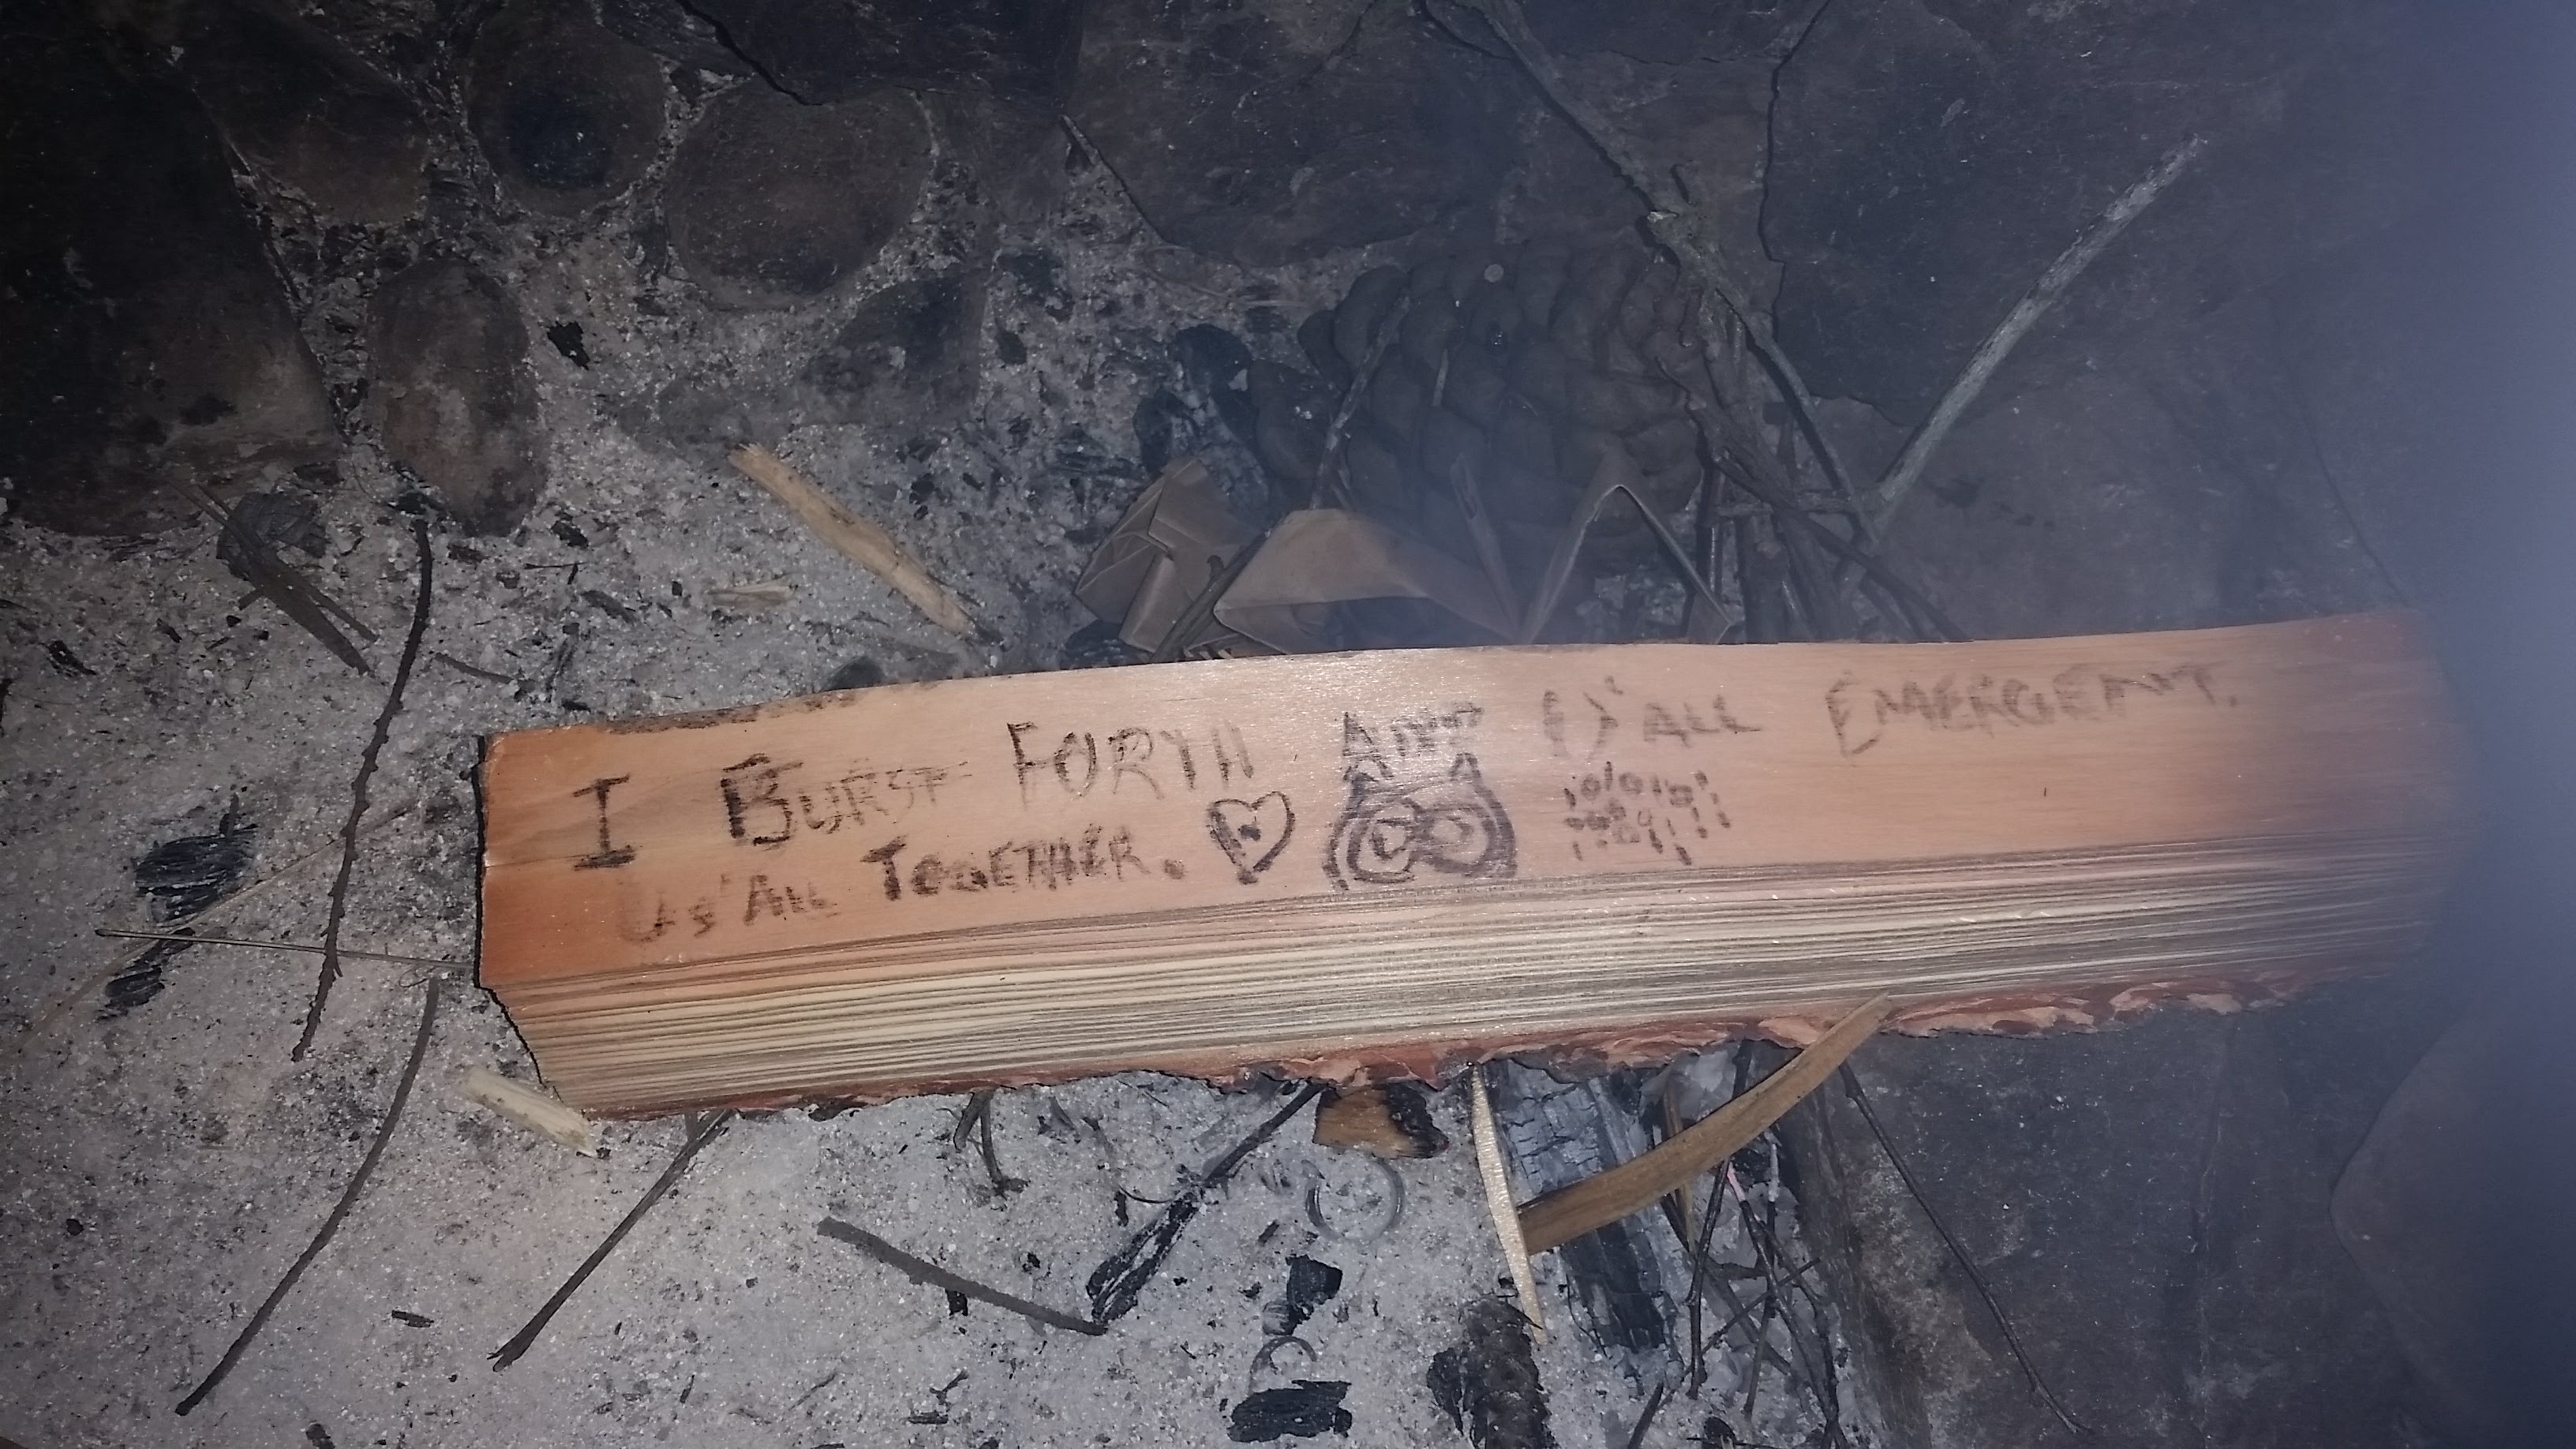 I BURST FORTH AND () 'ALL EMERGENT.
US'ALL TOGETHER.